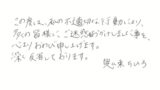 この度は、私の不適切な行動により、
多くの皆様に、ご迷惑をおかけしました事を、
心よりおわび申し上げます。
深く反省しております。
ちひろ